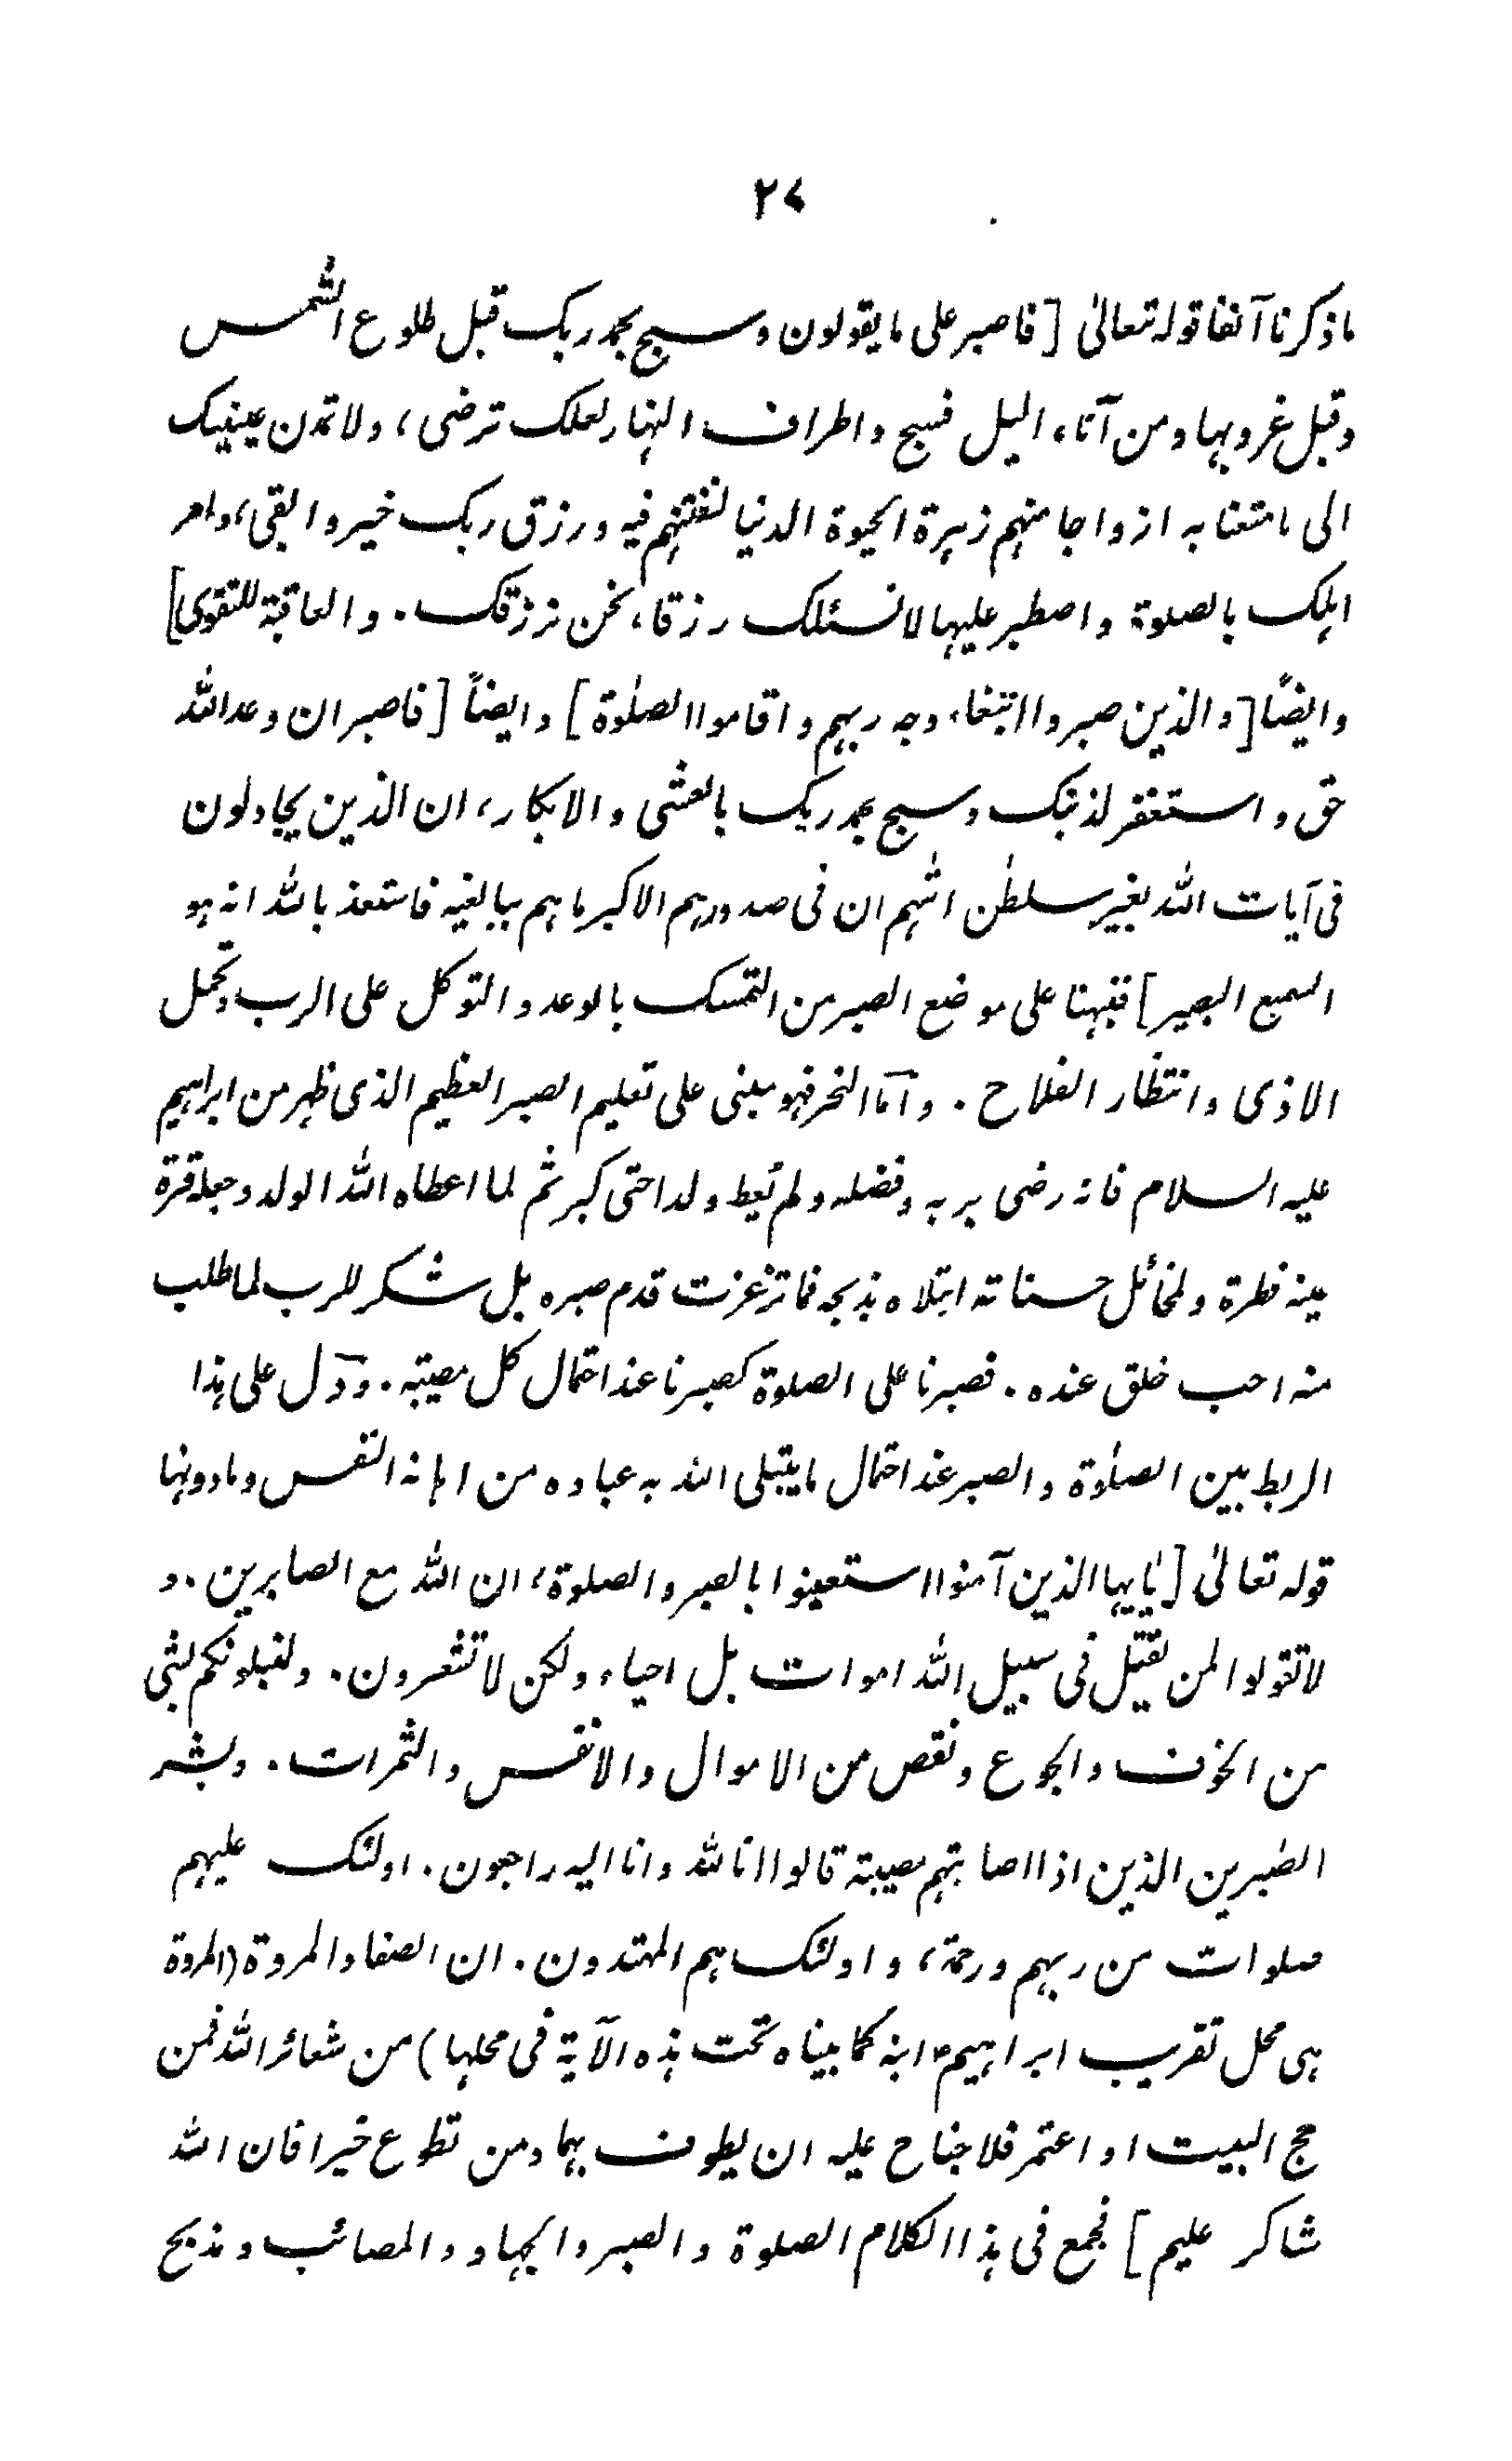 ٢٧
ما ذكرنا آنفا قوله تعالىٰ [فاصبر على ما يقولون وسبح بحمد ربك قبل طلوع الشمس
وقبل غروبها ومن آناء اليل فسبح واطراف النهار لعلك ترضى، ولا تمدن عينيك
الى ما متعنا به ازواجا منهم زهرة الحيوة الدنيا لنفتنهم فيه ورزق ربك خير وابقى، وامر
اهلك بالصلوة واصطبر عليها لا نسئلك رزقا، نحن نرزقك. والعاقبة للتقوى]
وايضًا [والذين صبروا ابتغاء وجه ربهم واقاموا الصلٰوة] وايضاً [فاصبر ان وعد الله
حق واستغفر لذنبك وسبح بحمد ربك بالعشى والابكار، ان الذين يجادلون
فى آيات الله بغير سلطٰن اتٰهم ان فى صدورهم الا كبر ما هم ببالغيه فاستعذ بالله انه هو
السميع البصير] فنبهنا على موضع الصبر من التمسك بالوعد والتوكل على الرب وتحمل
الاذى وانتظار الفلاح. وامّا النحر فهو مبنى على تعليم الصبر العظيم الذى ظهر من ابراهيم
عليه السلام فانه رضى بربه وفضله ولم يُعط ولدا حتى كبر ثم لما اعطاه الله الولد وجعله قرة
عينه فطرة ولمخائل حسناته ابتلاه بذبحه فما تزعزعت قدم صبره بل شكر للرب لما طلب
منه احب خلق عنده. فصبرنا على الصلوة كصبرنا عند احتمال كل مصيبة. ودّل على هذا
الربط بين الصلٰوة والصبر عند احتمال ما يبتلى الله به عباده من اهانة النفس وما دونها
قوله تعالىٰ [يٰايها الذين آمنوا استعينوا بالصبر والصلوة، ان الله مع الصابرين. و
لا تقولوا لمن يقتل فى سبيل الله اموات بل احياء ولكن لا تشعرون. ولنبلونكم بشئ
من الخوف والجوع ونقص من الاموال والانفس والثمرات. وبشر
الصٰبرين الذين اذا اصابتهم مصيبة قالوا انا لله وانا اليه راجعون. اولئك عليهم
صلوات من ربهم ورحمة، واولئك هم المهتدون. ان الصفا والمروة (المروة
هى محل تقريب ابراهيمؑ ابنه كما بيناه تحت هذه الآية فى محلها) من شعائر الله فمن
حج البيت او اعتمر فلا جناح عليه ان يطوف بهما ومن تطوع خيرا فان الله
شاكر عليم] فجمع فى هذا الكلام الصلوة والصبر والجهاد والمصائب ومذبح